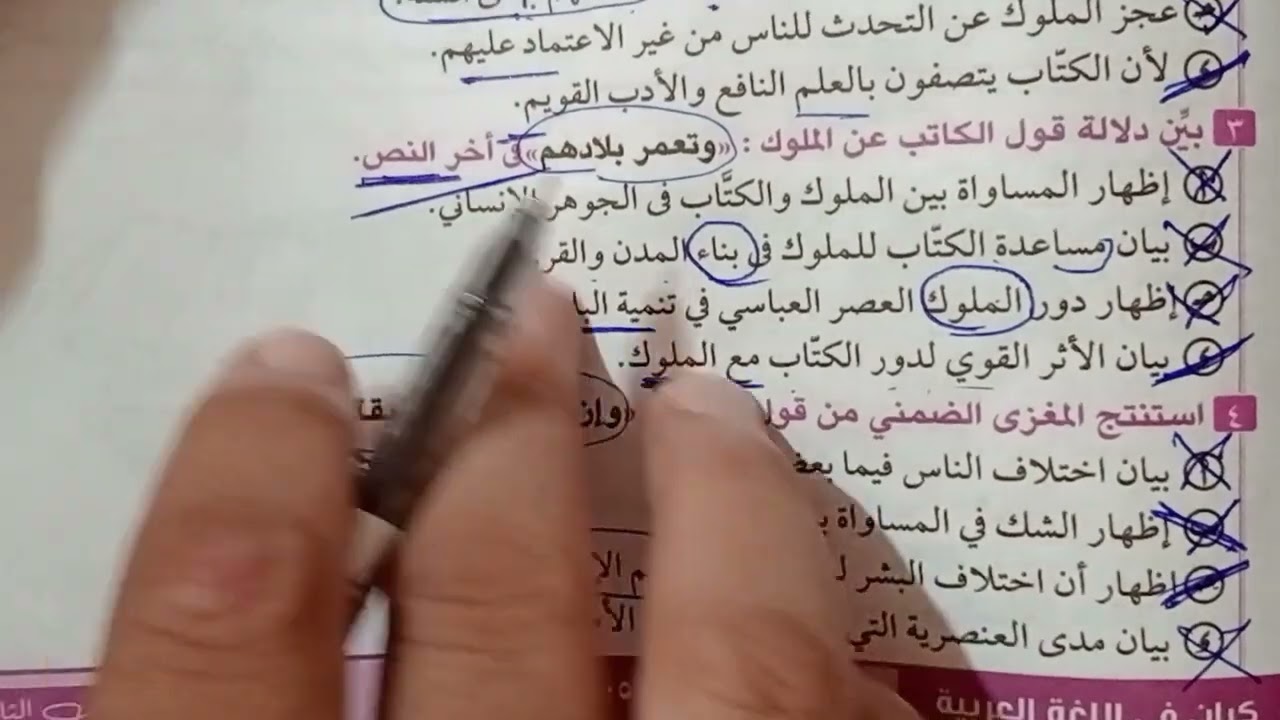 عجز الملوك عن التحدث للناس من غير الاعتماد عليهم.
لأن الكتّاب يتصفون بالعلم النافع والأدب القويم.
٣ بيِّن دلالة قول الكاتب عن الملوك : «وتعمر بلادهم» في أخر النص.
إظهار المساواة بين الملوك والكتَّاب فى الجوهر الإنساني.
بيان مساعدة الكتّاب للملوك في بناء المدن والقر
إظهار دور الملوك العصر العباسي في تنمية
بيان الأثر القوي لدور الكتّاب مع الملوك.
٤ استنتج المغزى الضمني من
بيان اختلاف الناس فيما
إظهار الشك في المساواة
إظهار أن اختلاف البشر
بيان مدى العنصرية التي
كيان في اللغة العربية